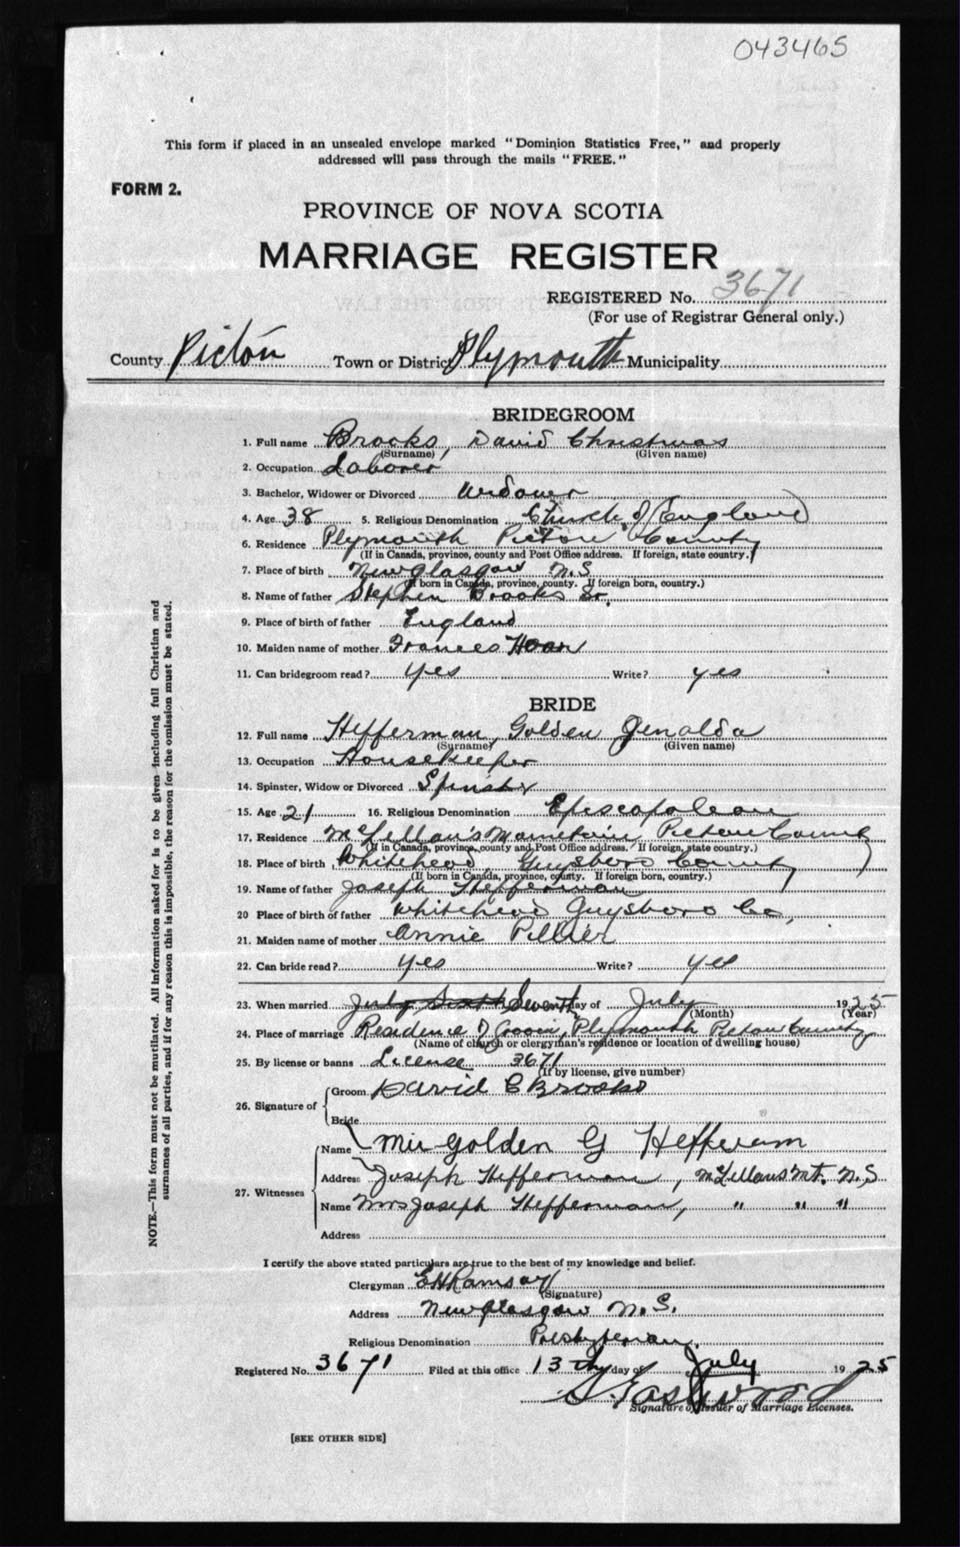 043465
This form if placed in an unsealed envelope marked "Dominion Statistics Free," and properly
addressed will pass through the mails "FREE."
FORM 2.
PROVINCE OF NOVA SCOTIA
MARRIAGE REGISTER
REGISTERED No. 3671
(For use of Registrar General only.)
County Pictou Town or District Plymouth Municipality
BRIDEGROOM
1. Full name Brooks, David Christmas
(Surname) (Given name)
2. Occupation Laborer
3. Bachelor, Widower or Divorced Widower
4. Age 38 5. Religious Denomination Church of England
6. Residence Plymouth Pictou County
(If in Canada, province, county and Post Office address. If foreign, state country.)
7. Place of birth New Glasgow N.S
(If born in Canada, province, county. If foreign born, country.)
8. Name of father Stephen Brooks Sr.
9. Place of birth of father England
10. Maiden name of mother Frances
11. Can bridegroom read? Yes Write? yes
BRIDE
12. Full name Hefferman, Golden Genalda
(Surname) (Given name)
13. Occupation Housekeeper
14. Spinster, Widow or Divorced Spinster
15. Age 21 16. Religious Denomination Episcopalean
17. Residence McLellan's Mountain Pictou County
(If in Canada, province, county and Post Office address. If foreign, state country.)
18. Place of birth Whitehead, Guysboro County
(If born in Canada, province, county. If foreign born, country.)
19. Name of father Joseph Hefferman
20 Place of birth of father Whitehead Guysboro Co,
21. Maiden name of mother Annie
22. Can bride read? yes Write? yes
23. When married July Sixth Seventh day of July 1925
(Month) (Year)
24. Place of marriage Residence of Groom, Plymouth Pictou County
(Name of church or clergyman's residence or location of dwelling house)
25. By license or banns License 3671
(If by license, give number)
26. Signature of Groom David C Brooks
Bride
27. Witnesses Name Golden G
Address Joseph Hefferman, McLellans Mt. N.S
Name Mrs Joseph Hefferman, " " "
Address
I certify the above stated particulars are true to the best of my knowledge and belief.
Clergyman E H Ramsay
(Signature)
Address New Glasgow N.S.
Religious Denomination Presbyterian.
Registered No. 3671 Filed at this office 13th day of July 1925
Eastwood
Signature of Issuer of Marriage Licenses.
[SEE OTHER SIDE]
NOTE.—This form must not be mutilated. All information asked for is to be given including full Christian and
surnames of all parties, and if for any reason this is impossible, the reason for the omission must be stated.